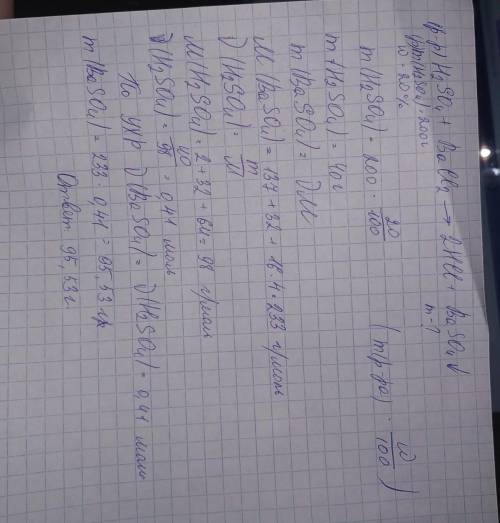 р-р H₂SO₄ + BaCl₂ → 2HCl + BaSO₄↓
m(р-ра H₂SO₄) = 200г
m - ?
ω = 20%
m(H₂SO₄) = 200 · 20/100 (m(р-ра) · ω/100)
m(H₂SO₄) = 40г
m(BaSO₄) = νM
M(BaSO₄) = 137 + 32 + 16·4 = 233 г/моль
ν(H₂SO₄) = m/M
M(H₂SO₄) = 2 + 32 + 64 = 98 г/моль
ν(H₂SO₄) = 40/98 = 0,41 моль
По ухр ν(BaSO₄) = ν(H₂SO₄) = 0,41 моль
m(BaSO₄) = 233 · 0,41 = 95,53 гр
Ответ 95,53г